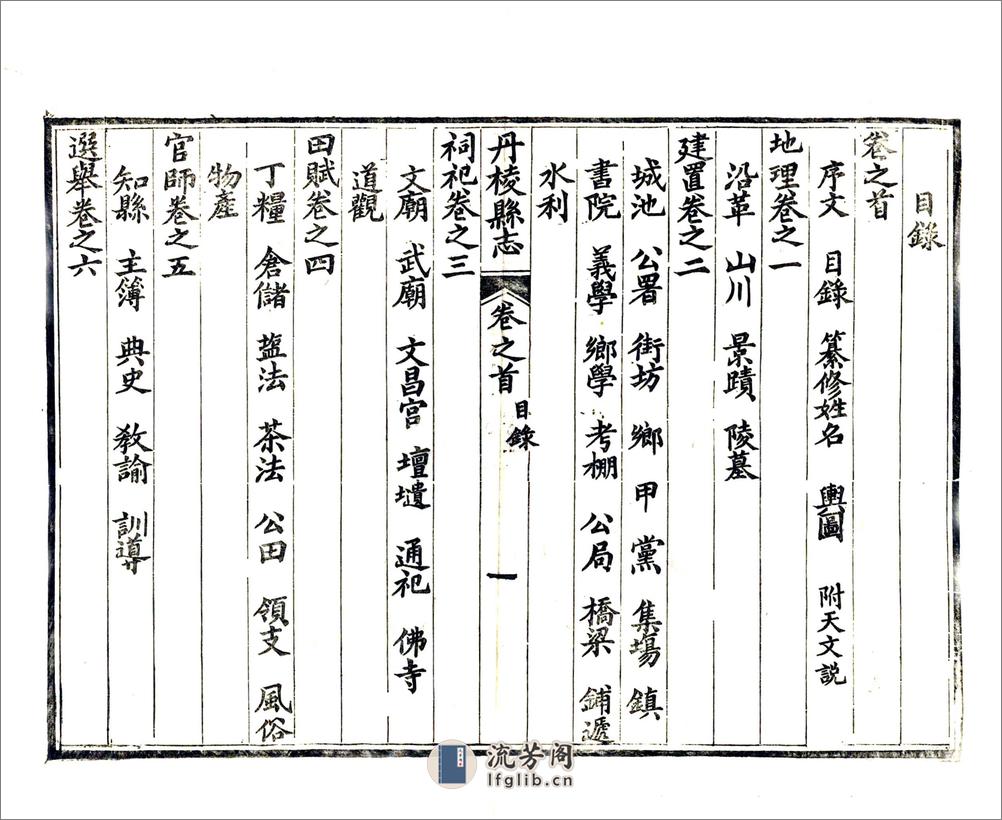 目錄
卷之首
序文 目錄 纂修姓名 輿圖 附天文說
地理卷之一
沿革 山川 景蹟 陵墓
建置卷之二
城池 公署 街坊 鄉 甲 黨 集場 鎮
書院 義學 鄉學 考棚 公局 橋梁 鋪遞
水利
丹棱縣志 卷之首 目錄 一
祠祀卷之三
文廟 武廟 文昌宮 壇壝 通祀 佛寺
道觀
田賦卷之四
丁糧 倉儲 塩法 茶法 公田 領支 風俗
物產
官師卷之五
知縣 主簿 典史 教諭 訓導
選舉卷之六
流芳阁
lfglib.cn